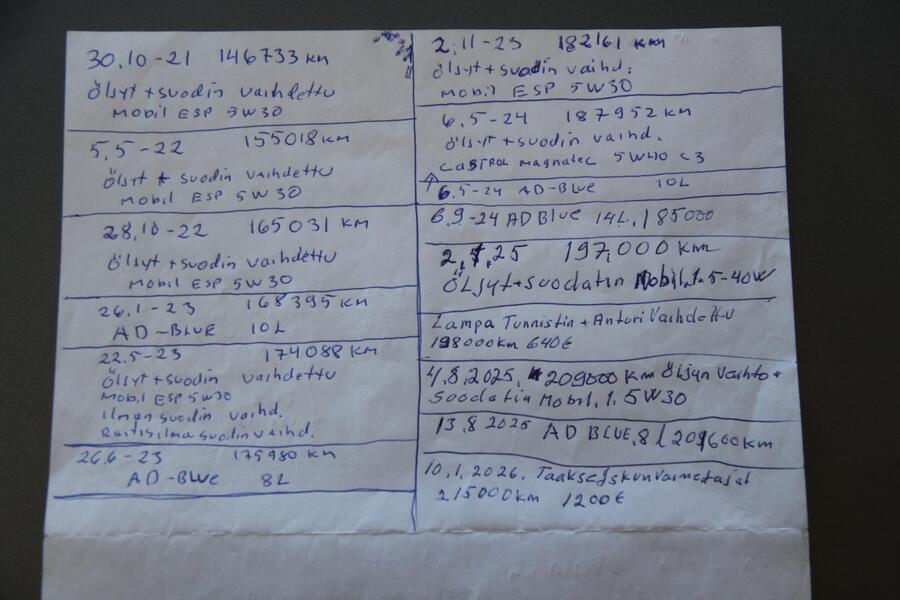 30.10-21 146733 km
Öljyt + suodin vaihdettu
Mobil ESP 5W30
5.5-22 155018 KM
Öljyt + suodin vaihdettu
Mobil ESP 5W30
28.10-22 165031 KM
Öljyt + suodin vaihdettu
Mobil ESP 5W30
26.1-23 168395 KM
AD-BLUE 10L
22.5-23 174088 KM
Öljyt + suodin vaihdettu
Mobil ESP 5W30
Ilman suodin vaihd.
Raitisilma suodin vaihd.
26.6-23 179980 KM
AD-BLUE 8L
2.11-23 182161 KM
Öljyt + suodin vaihd.
Mobil ESP 5W30
6.5-24 187952 KM
Öljyt + suodin vaihd.
CASTROL Magnatec 5W40 C3
6.5-24 AD-BLUE 10L
6.9-24 AD Blue 14L. 185000
25 197,000 km
Öljyt + suodatin Mobil.1. 5-40W
Lampa Tunnistin + Anturi Vaihdettu
198000km 640€
4.8.2025. 209000 km Öljyn vaihto +
Suodatin Mobil.1. 5W30
13.8 2025 AD BLUE.8l 209600km
10.1.2026.
215000km 1200€